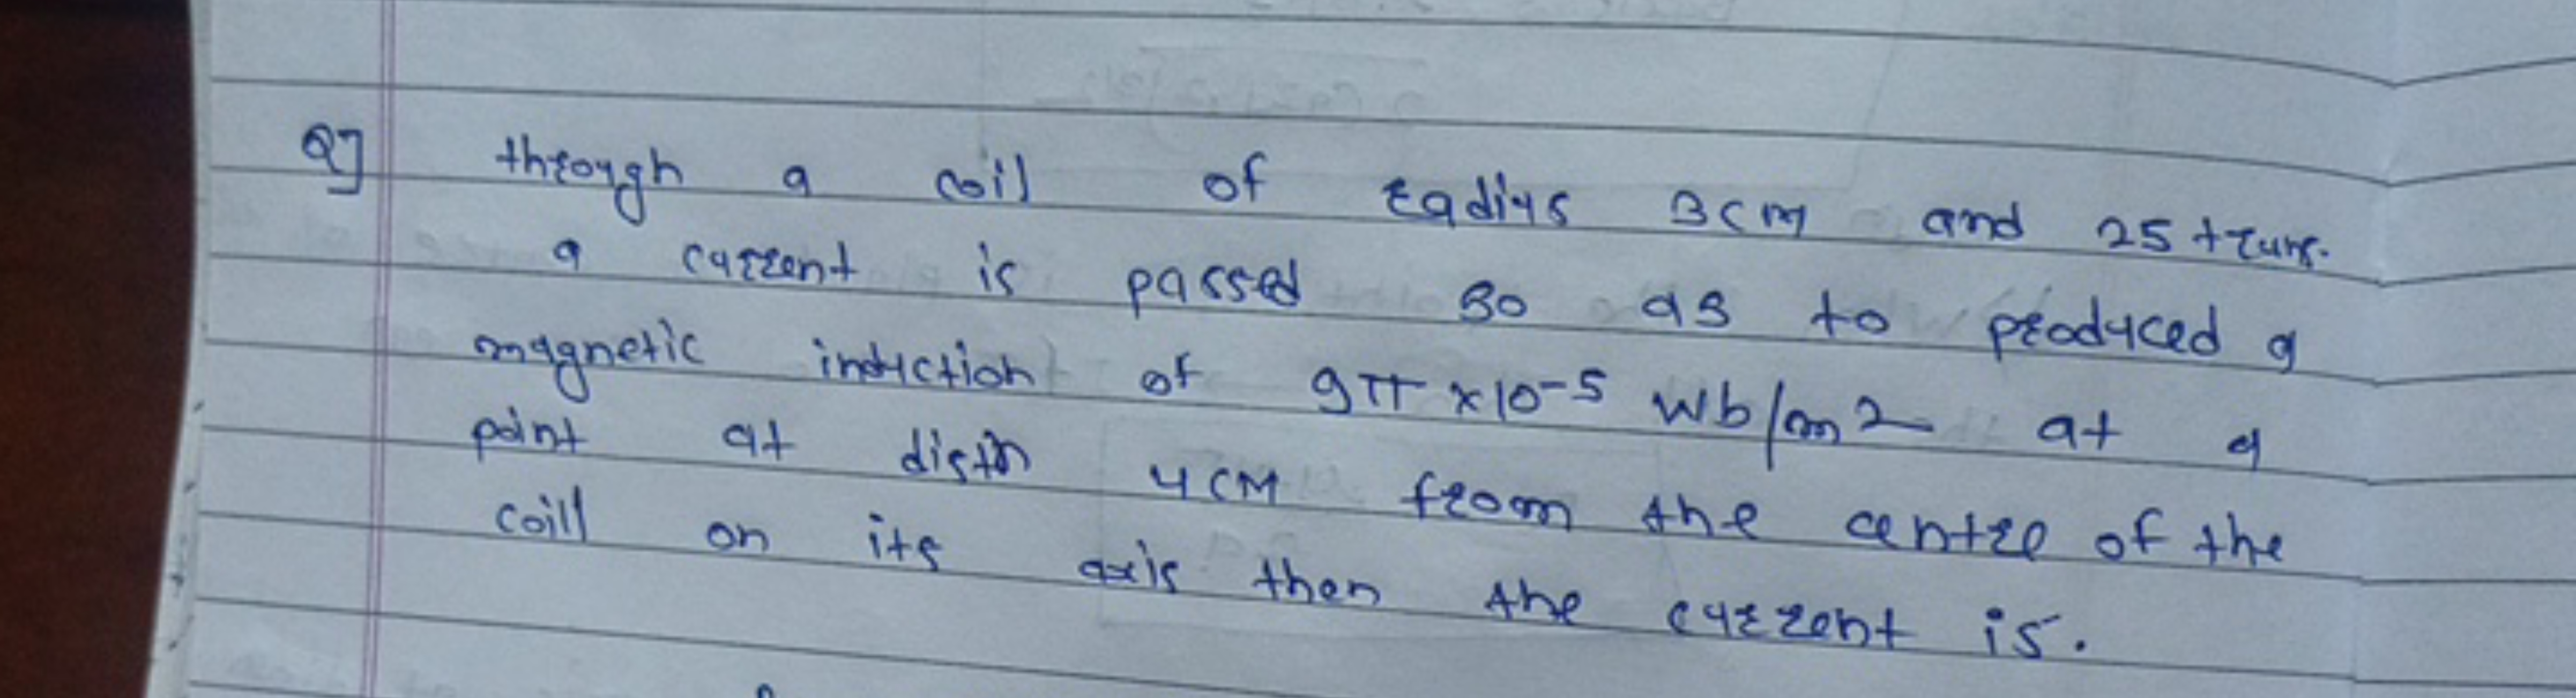 Q] through a coil of radius 3cm and 25 tturs.
a current is passed so as to produced a
magnetic induction of 9π×10-5 Wb/m2 at a
point at distn 4cm from the centre of the
coill on its axis then the current is.